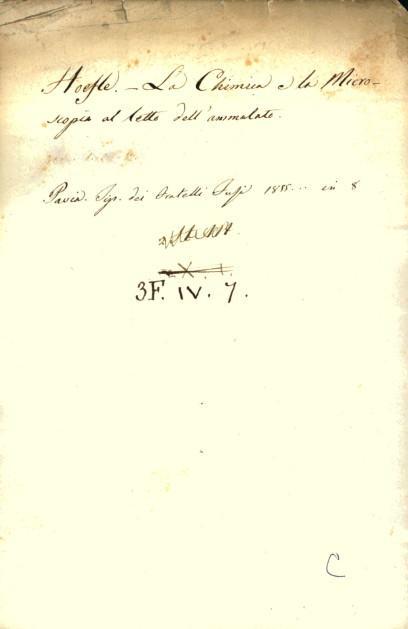 Hoefle. - La Chimica e la Micro-
scopia al letto dell'ammalato.
Pavia. Tip. dei Fratelli Fusi 1855... in 8
3F. IV. 7.
C